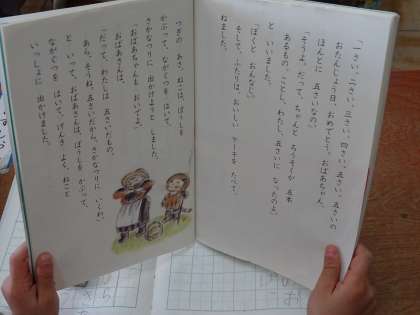 「一さい、二さい、三さい、四さい、五さい。五さいの
おたんじょう日、おめでとう、おばあちゃん。
ほんとに　五さいなの？」
「そうよ。だって、ちゃんと　ろうそくが　五本
あるもの。ことし、わたし、五さいに　なったのよ」
と　いいました。
「ぼくと　おんなじ」
そして、ふたりは、おいしい　ケーキを　たべて、
ねました。
つぎの　あさ、ねこは、ぼうしを
かぶって、ながぐつを　はいて、
さかなつりに　出かけようと　しました。
「おばあちゃんも　おいでよ」
「だって、わたしは　五さいだもの、
おばあさんは、
あら、そうね！　五さいだから、さかなつりに　いくわ」
と　いって、おばあさんは、ぼうしを　かぶって、
ながぐつを　はいて、げんき　よく、ねこと
いっしょに　出かけました。